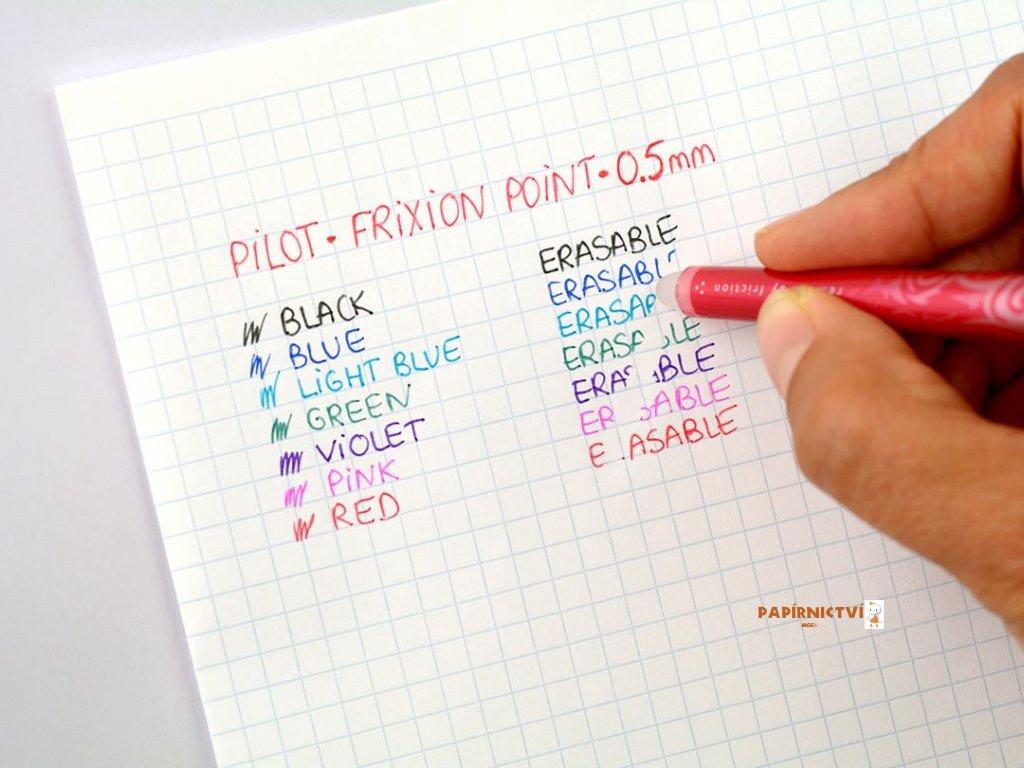 PiLOT • FRiXiON POiNT • 0.5mm
BLACK
BLUE
LiGHT BLUE
GREEN
ViOLET
PiNK
RED
ERASABLE
ERASABL
ERASA
ERASA LE
ERA ABLE
ER ABLE
E ASABLE
by friction
PAPÍRNICTVÍ